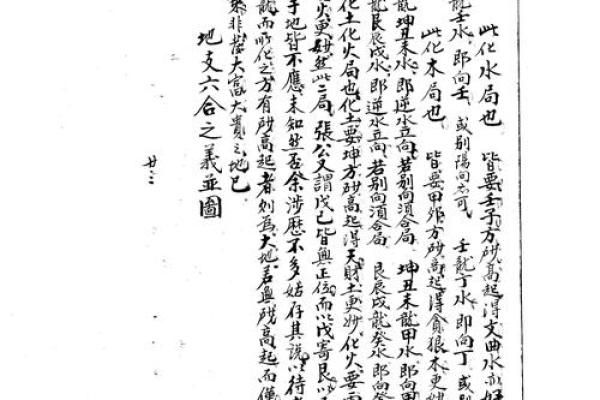 此化水局也　皆要壬子方砂高起得文曲水亦好
龍壬水即向壬　或別陽向亦可　壬龍丁水即向丁　或別
此化木局也　皆要甲卯方砂高起得貪狼木更妙
龍坤丑未水即逆水立向若別向須合局　坤丑未龍甲水即向甲
龍艮辰戌水即逆水立向若別向須合局　艮辰戌龍癸水即向癸
化土化火局也化土要坤方砂高起得天財土更妙化火要
火更妙然此二局張公又謂戊己皆無正位而以戊寄艮以
等地皆不應未知然否余涉歷不多姑存其說以待
龍而所化之方有砂高起者列為大地若無砂高起而僅
非發大富大貴之地已
地支六合之義並圖
廿三